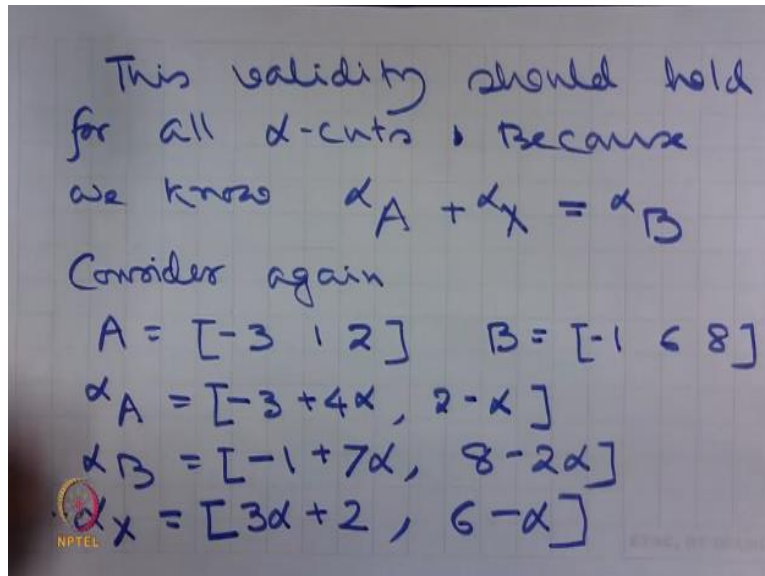 This validity should hold
for all α-cuts. Because
we know αA + αX = αB
Consider again
A = [-3 1 2] B = [-1 6 8]
αA = [-3 + 4α, 2 - α]
αB = [-1 + 7α, 8 - 2α]
αX = [3α + 2, 6 - α]
NPTEL